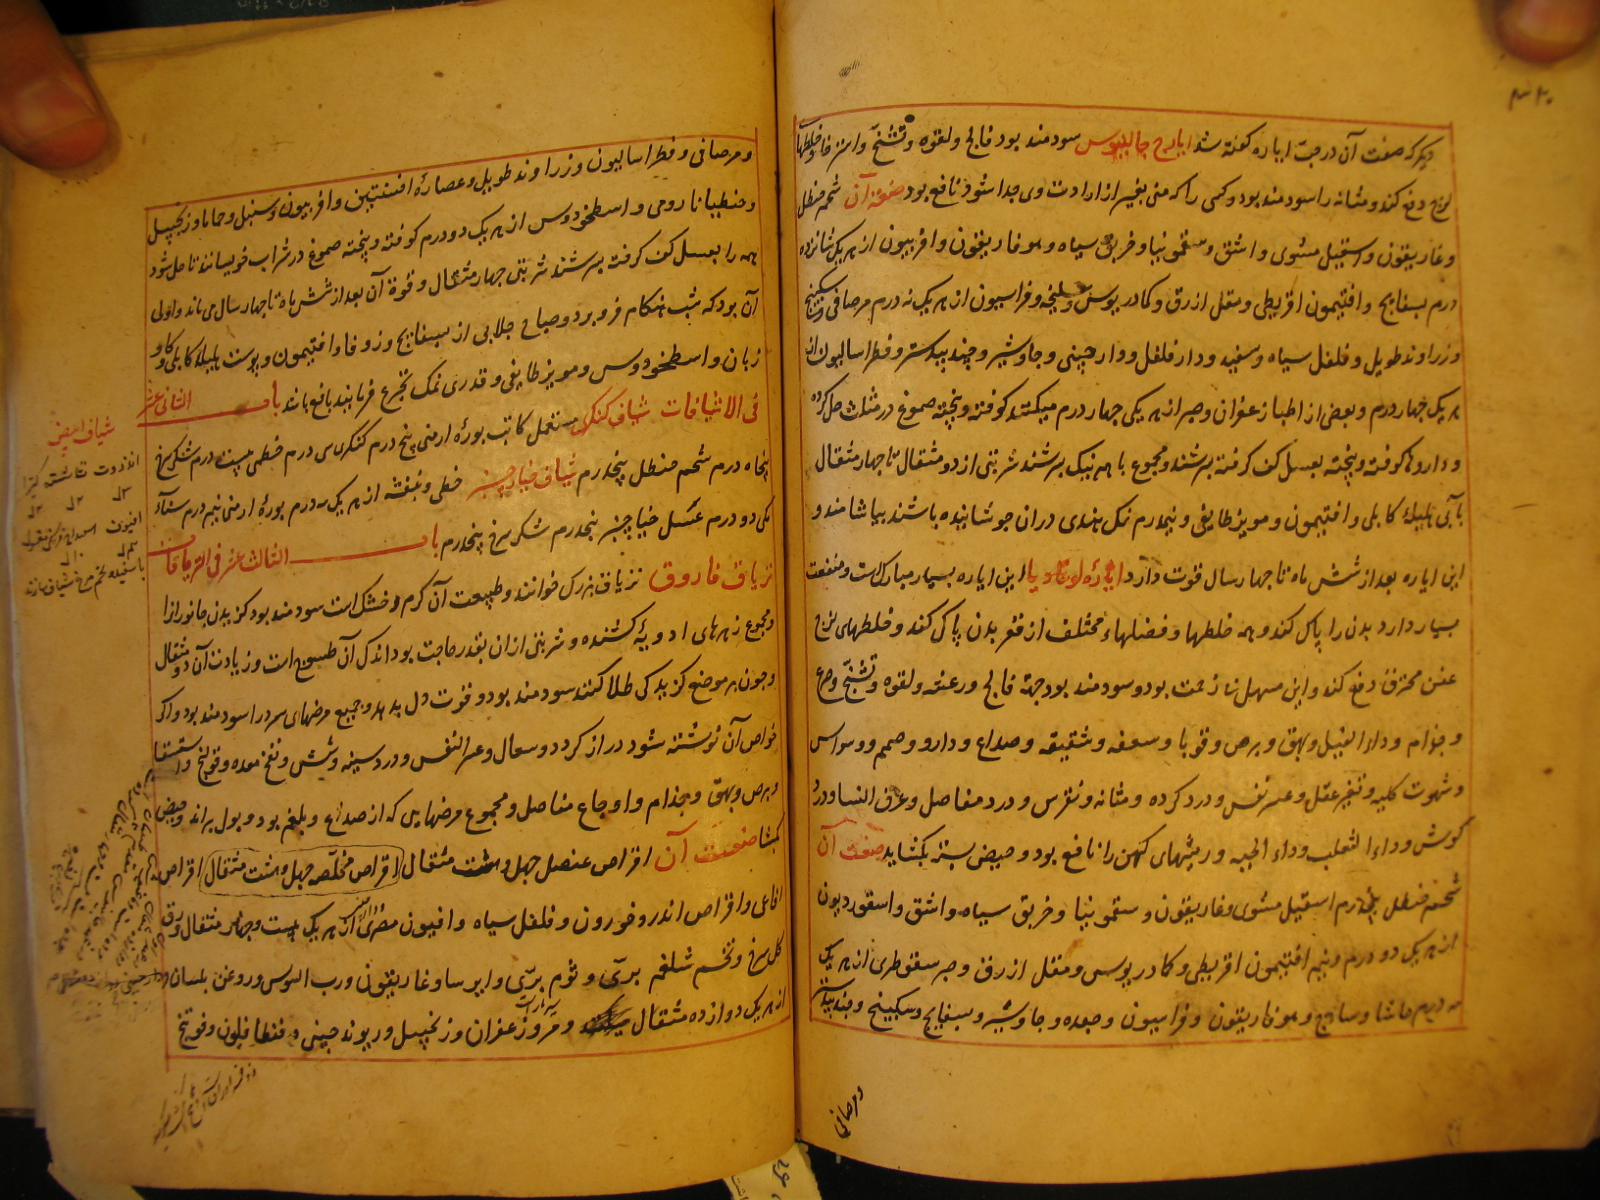 دیگر که صفت آن در جبت ایاره گفته شد ایارج جالینوس سودمند بود فالج و لقوه و تشنج و استرخا و خلطهاء
لزج دفع کند و مثانه را سودمند بود و کسی را که منی بغیر از ارادت وی جدا شود نافع بود صنعة آن شحم حنظل
و غاریقون و اسقیل مشوی و اشق و سقمونیا و خربق سیاه و هوفاریقون و افربیون از هر یک شانزده
درم بسفایج و افتیمون اقریطی و مقل ازرق و کمادریوس و سلیخه و فراسیون از هر یک نه درم مرصافی و سکبینج
و زراوند طویل و فلفل سیاه و سفید و دار فلفل و دارچینی و جاوشیر و جندبیدستر و فطراسالیون از
هر یک چهار درم و بعضی از اطبا زعفران و صبر از هر یکی چهار درم میکنند کوفته و پخته صموغ در مثلث حل کرده
و داروها کوفته و پخته بعسل کف گرفته بسرشند و مجموع با هم نیک بسرشند شربتی از دو مثقال تا چهار مثقال
با آبی هلیله کابلی و افتیمون و مویز طایفی و نیمدرم نمک هندی دران جوشانیده باشند بیاشامند و
این ایاره بعد از شش ماه تا چهار سال قوت دارد ایاره لوغاذیا این ایاره بسیار مبارکست و منفعت
بسیار دارد بدن را پاک کند و همه خلطها و فضلهاء مختلف از قعر بدن پاک کند و خلطهای لزج
عفن محترق دفع کند و این مسهل نا زحمت بود و سودمند بود جهة فالج و رعشه و لقوه و تشنج و صرع
و جذام و داء الفیل و بهق و برص و قوبا و سعفه و شقیقه و صداع و دوار و صمم و وسواس
و شهوت کلبیه و تغیر عقل و عسر نفس و درد گرده و مثانه و نقرس و درد مفاصل و عرق النسا و درد
گوش و داء الثعلب و داء الحیه و ریشهای کهن را نافع بود و حیض بسته بگشاید صفت آن
شحم حنظل پنج درم اسقیل مشوی و غاریقون و سقمونیا و خربق سیاه و اشق و اسقوردیون
از هر یک دو درم و نیم افتیمون اقریطی و کمادریوس و مقل ازرق و صبر سقوطری از هر یک
سه درم حاشا و ساذج و هوفاریقون و فراسیون و جعده و جاوشیر و بسفایج و سکبینج و جندبیدستر
و مرصافی
و مرصافی و فطراسالیون و زراوند طویل و عصاره افسنتین و افربیون و سنبل و حماما و زنجبیل
و جنطیانا رومی و اسطخودوس از هر یک دو درم کوفته و پخته صموغ در شراب خویسانند تا حل شود
همه را بعسل کف گرفته بسرشند شربتی چهار مثقال و قوة آن بعد از شش ماه تا چهار سال می ماند و اولی
آن بود که شب هنگام فرو برد و صباح جلابی از بسفایج و زوفا و افتیمون و پوست هلیله کابلی و گاو
زبان و اسطخودوس و مویز طایفی و قدری نمک تجرع فرمایند نافع باشد باب الثانی عشر
فی الاشیافات شیاف کنکر مستعمل کاتب بوره ارمنی پنج درم کنکر سی درم خطمی بیست درم شکر سرخ
پنجاه درم شحم حنظل پنجدرم شیاف خیارچنبر خطمی و بنفشه از هر یک سه درم بورۀ ارمنی نیم درم سناء
مکی دو درم عسل خیارچنبر پنجدرم شکر سرخ پنجدرم باب الثالث عشر فی التریاقات
تریاق فاروق تریاق بزرک خوانند و طبیعت آن گرم و خشک است سودمند بود گزیدن جانوران را
و مجموع زهرهای ادویۀ کشنده و شربتی ازان بقدر حاجت بود اندک آن طسوج است و زیادت آن دو مثقال
و چون بر موضع گزیدگی طلا کنند سودمند بود و قوت دل بدهد و جمیع مرضهای سرد را سودمند بود و اگر
خواص آن نوشته شود دراز گردد و سعال و عسر النفس و درد سینه و شش و نفخ معده و قولنج و استسقا
و برص و بهق و جذام و اوجاع مفاصل و مجموع مرضهایی که از صداع و بلغم بود و بول براند و حیض
بگشا صفت آن اقراص عنصل چهل و هشت مثقال اقراص مخلصه چهل و هشت مثقال اقراص
افاعی و اقراص اندروخورون و فلفل سیاه و افیون مصری از هر یک بیست و چهار مثقال ورق
گل سرخ و تخم شلغم بری و ثوم بری و ایرسا و غاریقون و رب السوس و روغن بلسان و دارچینی
از هر یک دوازده مثقال و مر و زعفران و زنجبیل و ریوند چینی و فنطافلون و فوتنج
شیاف ابیض
انزروت نشاسته کتیرا
افیون اسفیداج
با سفیده تخم مرغ شیاف سازند